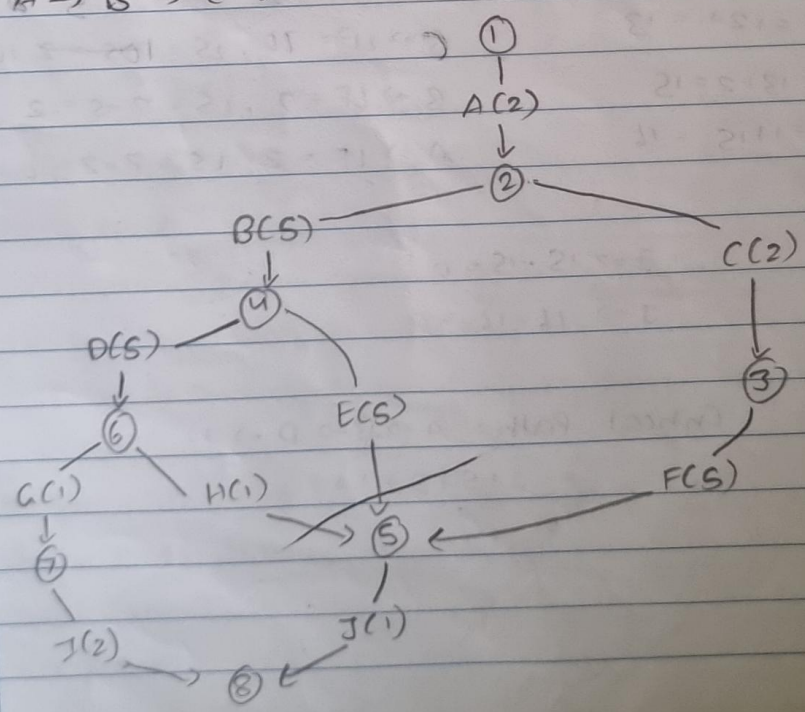 1
A(2)
2
B(5)
C(2)
4
D(5)
3
E(5)
6
F(5)
G(1)
H(1)
5
7
J(1)
I(2)
8